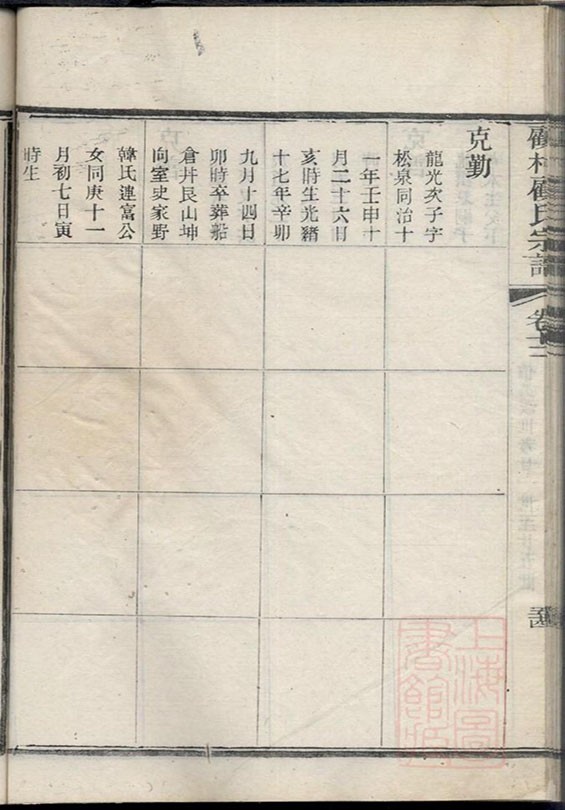 克勤
龍光次子字
松泉同治十
一年壬申十
月二十六日
亥時生光緒
十七年辛卯
九月十四日
卯時卒葬船
倉丼艮山坤
向室史家野
韓氏連富公
女同庚十一
月初七日寅
時生
氏宗譜
卷
上海圖
書館藏